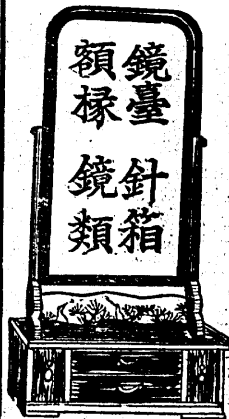 鏡臺 針箱
額椽 鏡類